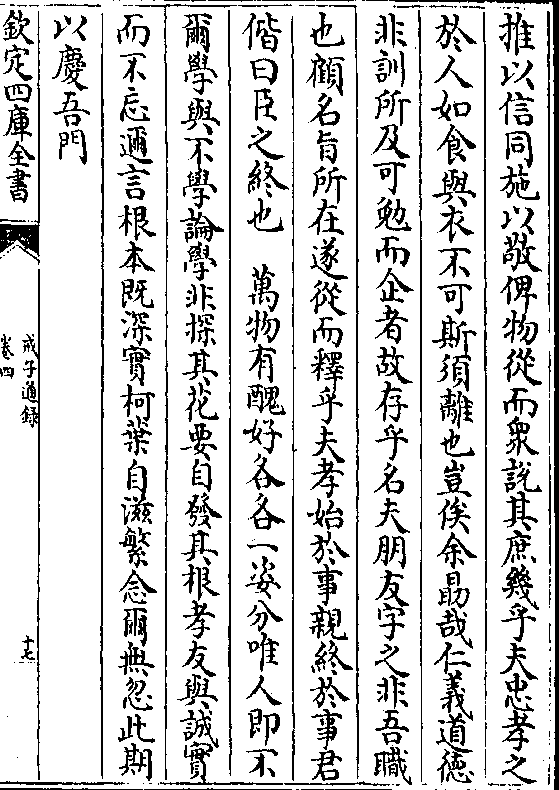 推以信同施以敬俾物從而衆說其庶幾乎夫忠孝之
於人如食與衣不可斯須離也豈俟余勗哉仁義道德
非訓所及可勉而企者故存乎名夫朋友字之非吾職
也顧名旨所在遂從而釋乎夫孝始於事親終於事君
偕曰臣之終也 萬物有醜好各各一姿分唯人即不
爾學與不學論學非探其花要自發其根孝友與誠實
而不忘邇言根本既深實柯葉自滋繁念爾無忽此期
以慶吾門
欽定四庫全書
戒子通録
卷四
十七